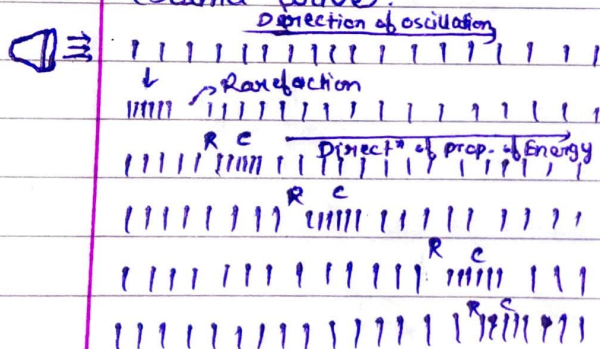 (Sound Wave.
Direction of oscillation
Rarefaction
R C
Direct^n of prop. of Energy
R C
R C
R C